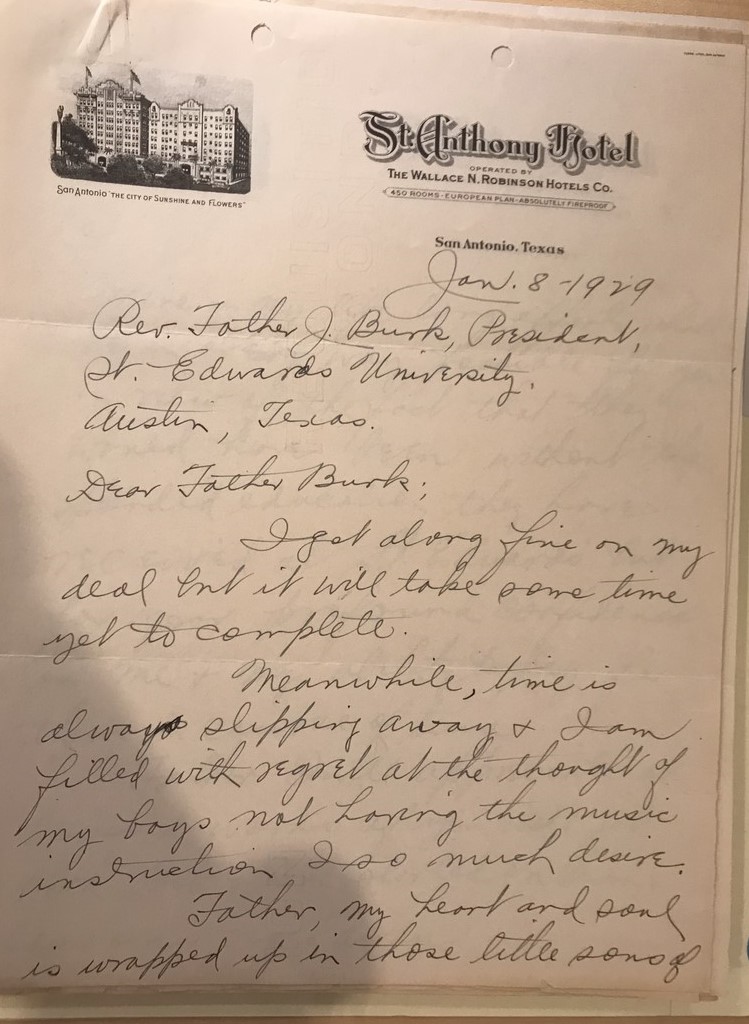 St. Anthony Hotel
OPERATED BY
THE WALLACE N. ROBINSON HOTELS CO.
450 ROOMS - EUROPEAN PLAN - ABSOLUTELY FIREPROOF
San Antonio "THE CITY OF SUNSHINE AND FLOWERS"
San Antonio, Texas
Jan. 8 - 1929
Rev. Father J. Burk, President,
St. Edwards University,
Austin, Texas.
Dear Father Burk;
I get along fine on my
deal but it will take some time
yet to complete.
Meanwhile, time is
always slipping away & I am
filled with regret at the thought of
my boys not having the music
instruction I so much desire.
Father, my heart and soul
is wrapped up in those little sons of